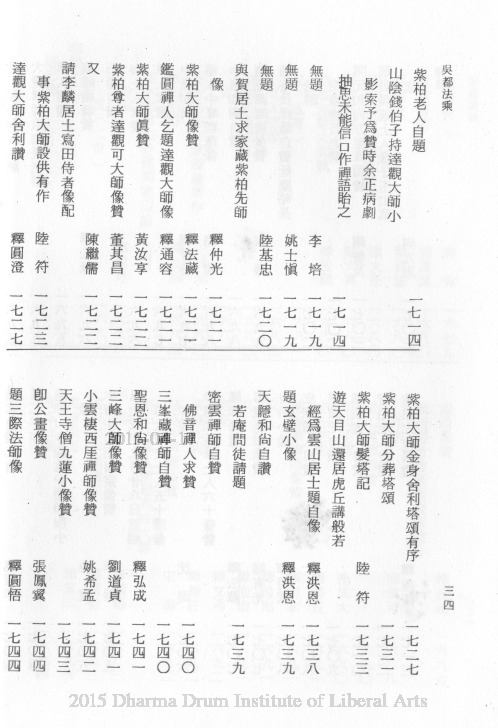 吳都法乘
三四
紫柏老人自題 一七一四
山陰錢伯子持達觀大師小
影索予爲贊時余正病劇
抽思未能信口作禪語貽之 一七一四
無題 李培 一七一九
無題 姚士愼 一七一九
無題 陸基忠 一七二〇
與賀居士求家藏紫柏先師
像 釋仲光 一七二一
紫柏大師像贊 釋法藏 一七二一
鑑圓禪人乞題達觀大師像 釋通容 一七二一
紫柏大師眞贊 黃汝享 一七二二
紫柏尊者達觀可大師像贊 董其昌 一七二二
又 陳繼儒 一七二二
請李麟居士寫田侍者像配
事紫柏大師設供有作 陸符 一七二三
達觀大師舍利讚 釋圓澄 一七二七
紫柏大師金身舍利塔頌有序 一七二七
紫柏大師分葬塔頌 一七三一
紫柏大師髮塔記 陸符 一七三三
遊天目山還居虎丘講般若
經爲雲山居士題自像 釋洪恩 一七三八
題玄壁小像 釋洪恩 一七三九
天隱和尙自讚
若庵問徒請題 一七三九
密雲禪師自贊
佛音禪人求贊 一七四〇
三峯藏禪師自贊 一七四〇
聖恩和尙像贊 釋弘成 一七四一
三峰大師像贊 劉道貞 一七四一
小雲棲西厓禪師像贊 姚希孟 一七四二
天王寺僧九蓮小像贊 一七四三
卽公畫像贊 張鳳翼 一七四四
題三際法師像 釋圓悟 一七四四
2015 Dharma Drum Institute of Liberal Arts